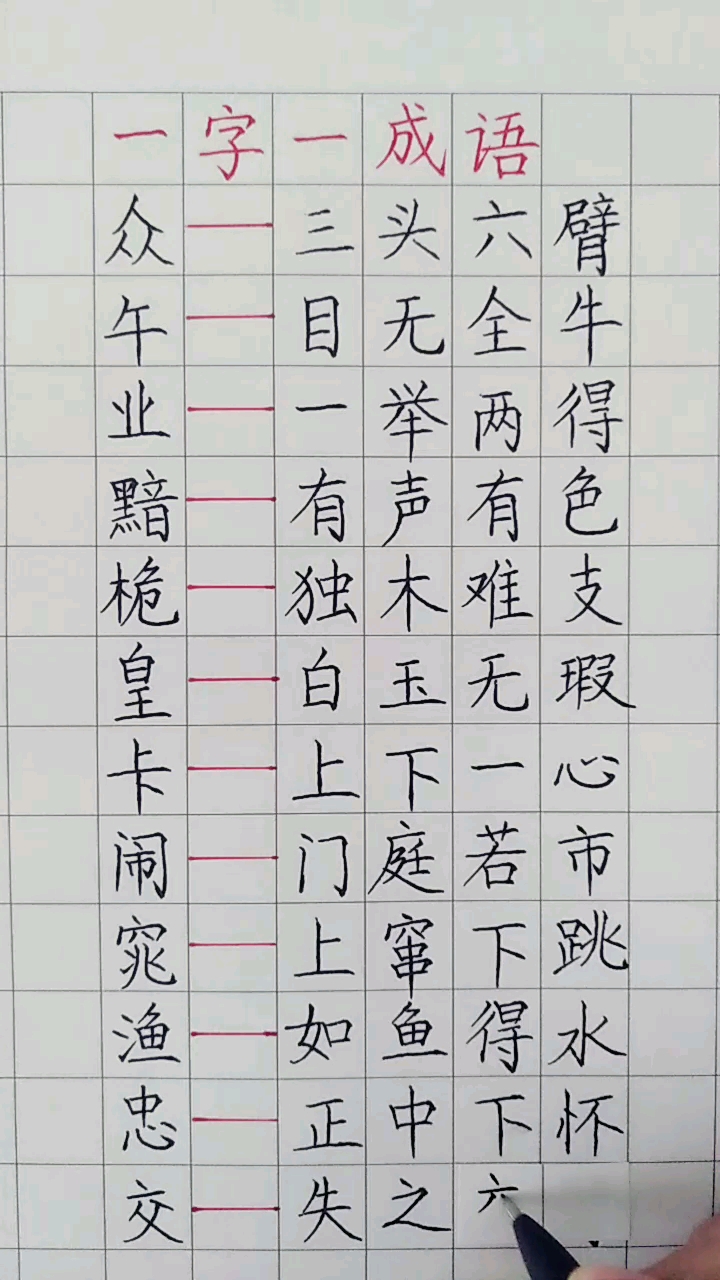 一字一成语
众——三头六臂
午——目无全牛
业——一举两得
黯——有声有色
桅——独木难支
皇——白玉无瑕
卡——上下一心
闹——门庭若市
窕——上窜下跳
渔——如鱼得水
忠——正中下怀
交——失之